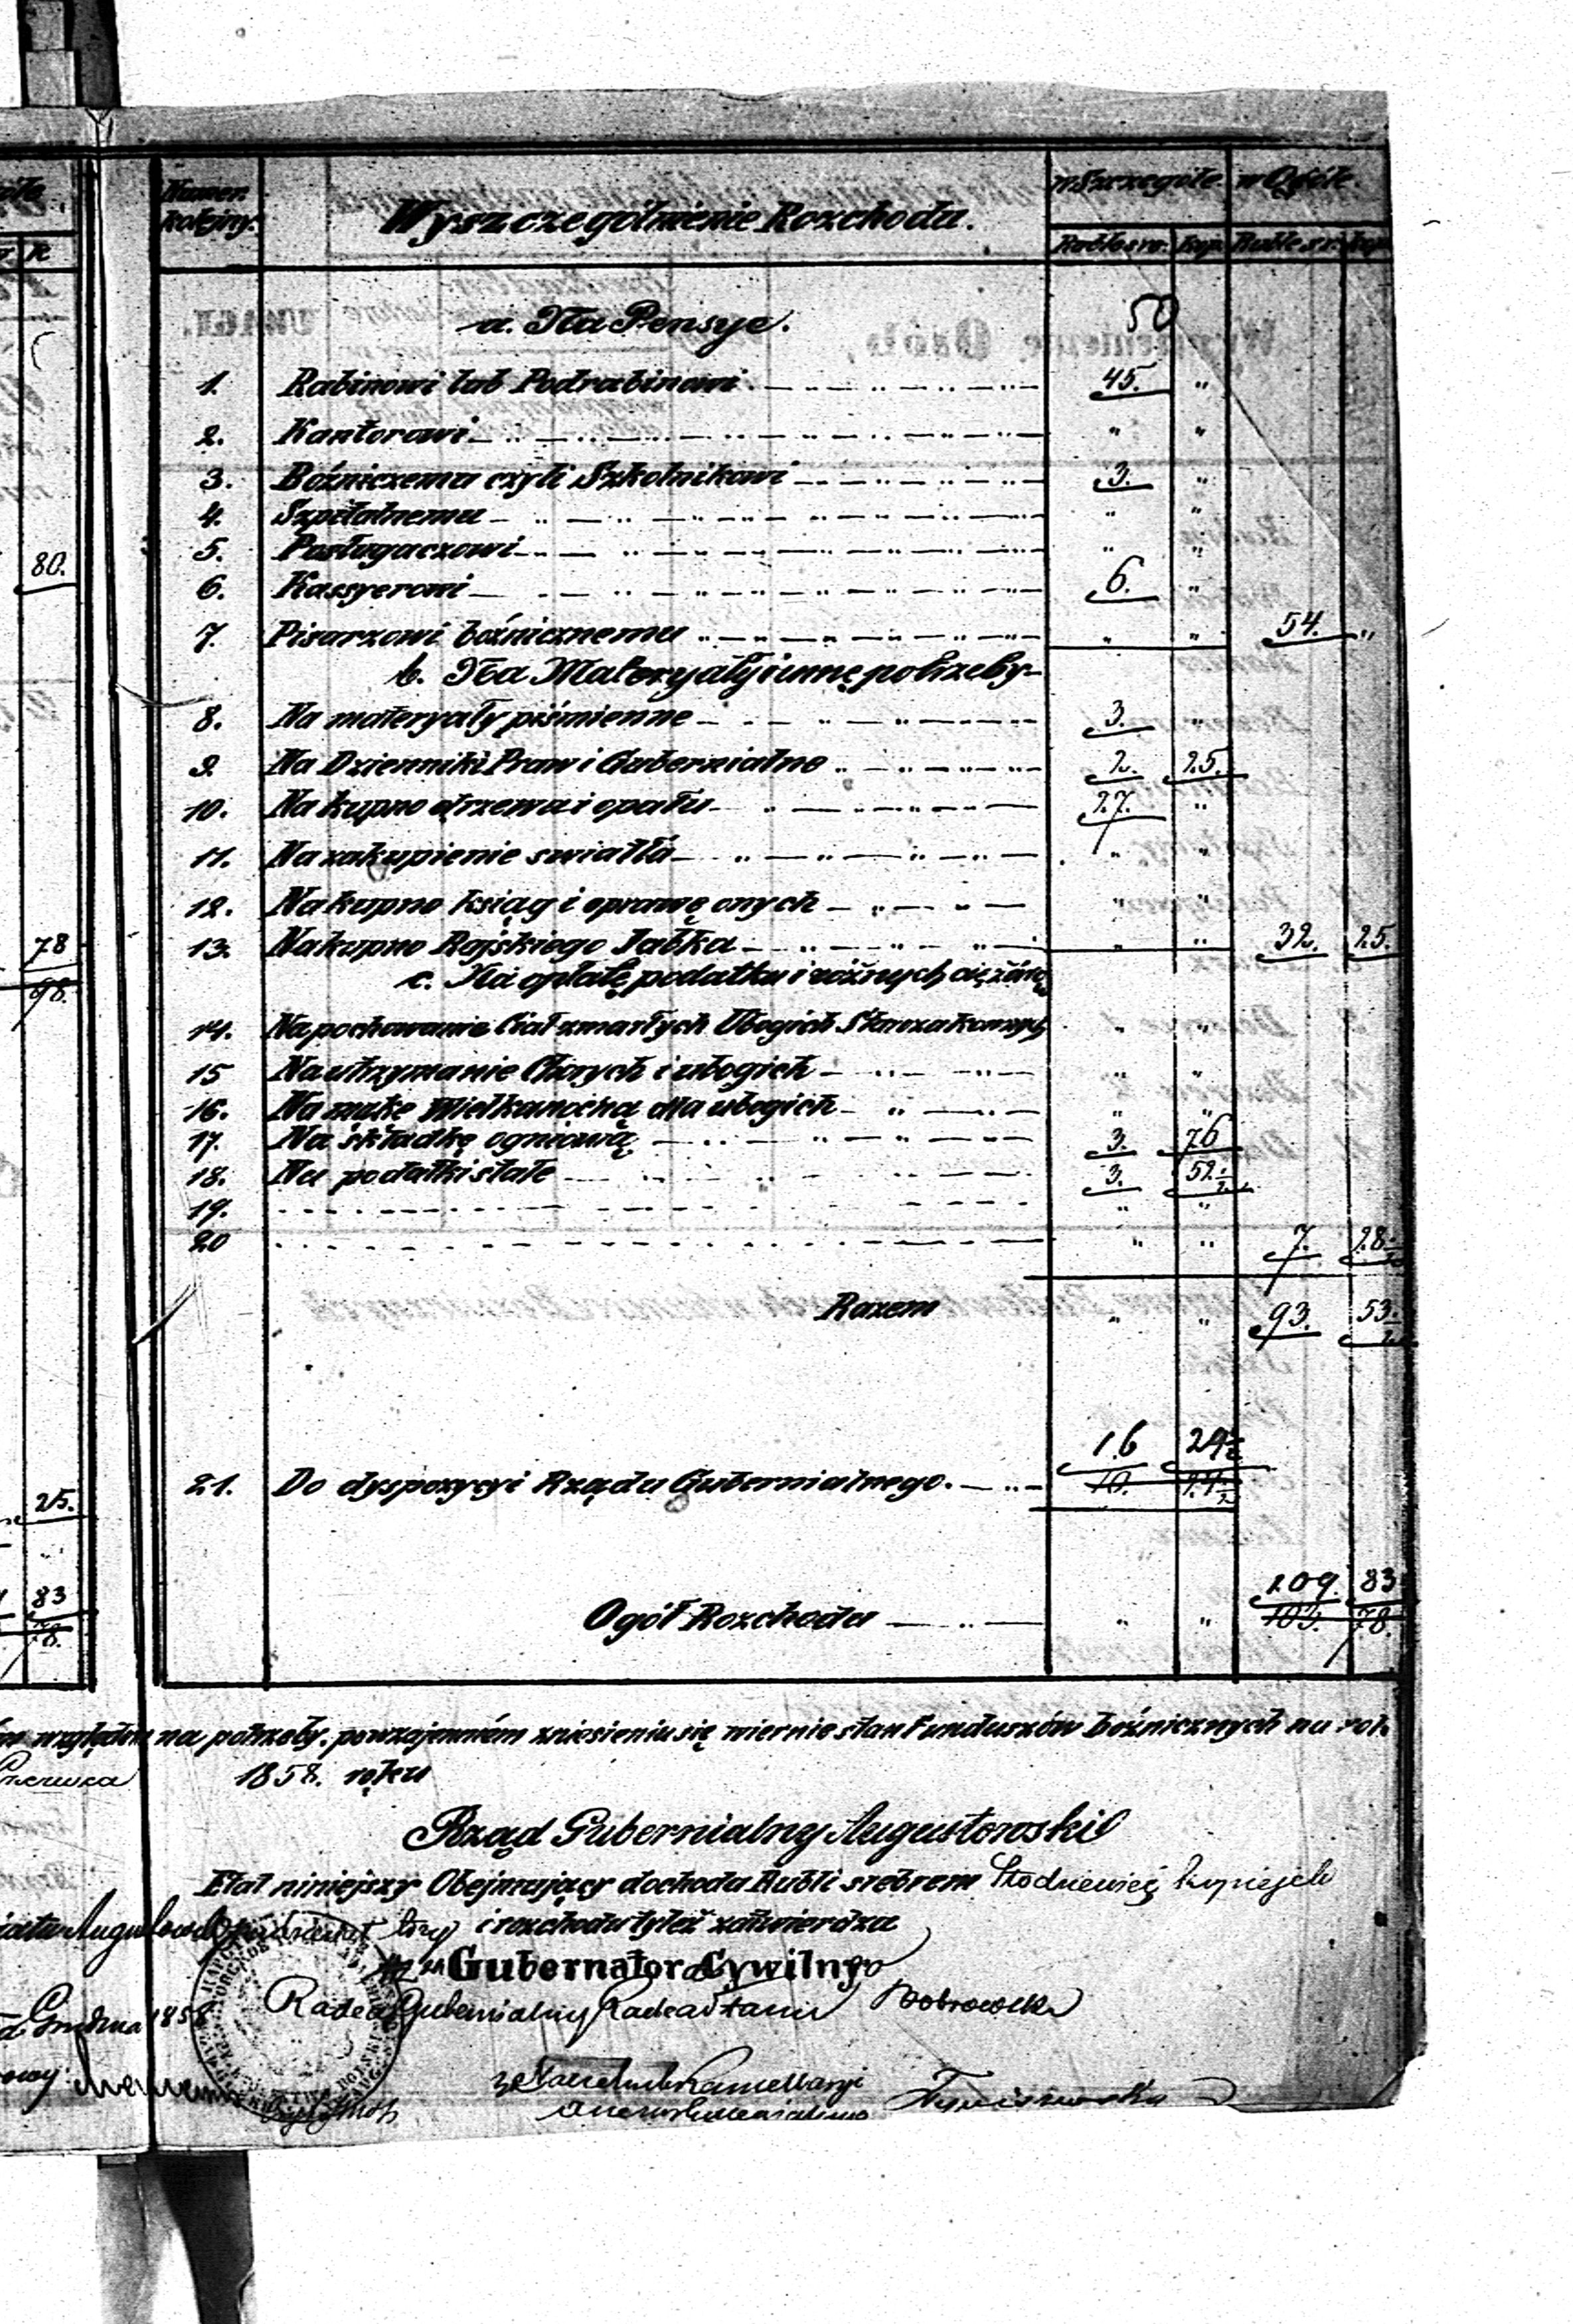 Numer kolejny. Wyszczegolnienie Rozchodu. w Szczególe w Ogóle.
Rubło sr. Kop. Ruble sr. Kop.
a. Na Pensye. 50
1. Rabinowi lub Podrabinowi 45. "
2. Kantorowi " "
3. Bóźniczemu czyli Szkolnikowi 3. "
80. 4. Szpitalnemu " "
5. Posługaczowi " "
6. Kassyerowi 6. "
7. Pisarzowi bóźnicznemu " " 54. "
b. Na Materyały i inne potrzeby
8. Na materyały piśmienne 3. "
9. Na Dzienniki Praw i Gubernialne 2. 25.
10. Na kupno drzewa i opału 27. "
11. Na zakupienie swiatła " "
12. Na kupno ksiąg i oprawę onych " "
78 13. Na kupno Rajskiego Jabłka " " 32. 25.
98. c. Na opłatę podatku i różnych ciężarów
14. Na pochowanie Ciał zmarłych Ubogich Starozakonnych " "
15 Na utrzymanie Chorych i ubogich " "
16. Na mąkę Wielkanocną dla ubogich " "
17. Na składkę ogniową 3. 76
18. Na podatki stałe 3. 52 1/2
19. " "
20 " " 7. 28 1/2
Razem " " 93. 53 1/2
16 29 1/2
25. 21. Do dyspozycyi Rządu Gubernialnego. 10. 24 1/2
83 109. 83
78. Ogół Rozchodu " " 103. 78.
względu na potrzeby, po wzajemném zniesieniu się wiernie stan Funduszów bóźnicznych na rok
Czerwca 1858. roku
Rząd Gubernialny Augustowski
Etat niniejszy Obejmujący dochodu Rubli srebrem Stodziewięć kopiejek
trzy i rozchodu tyleż zatwierdza
Gubernator Cywilny
Grudnia 1858 Radca Gubernialny Radca Stanu